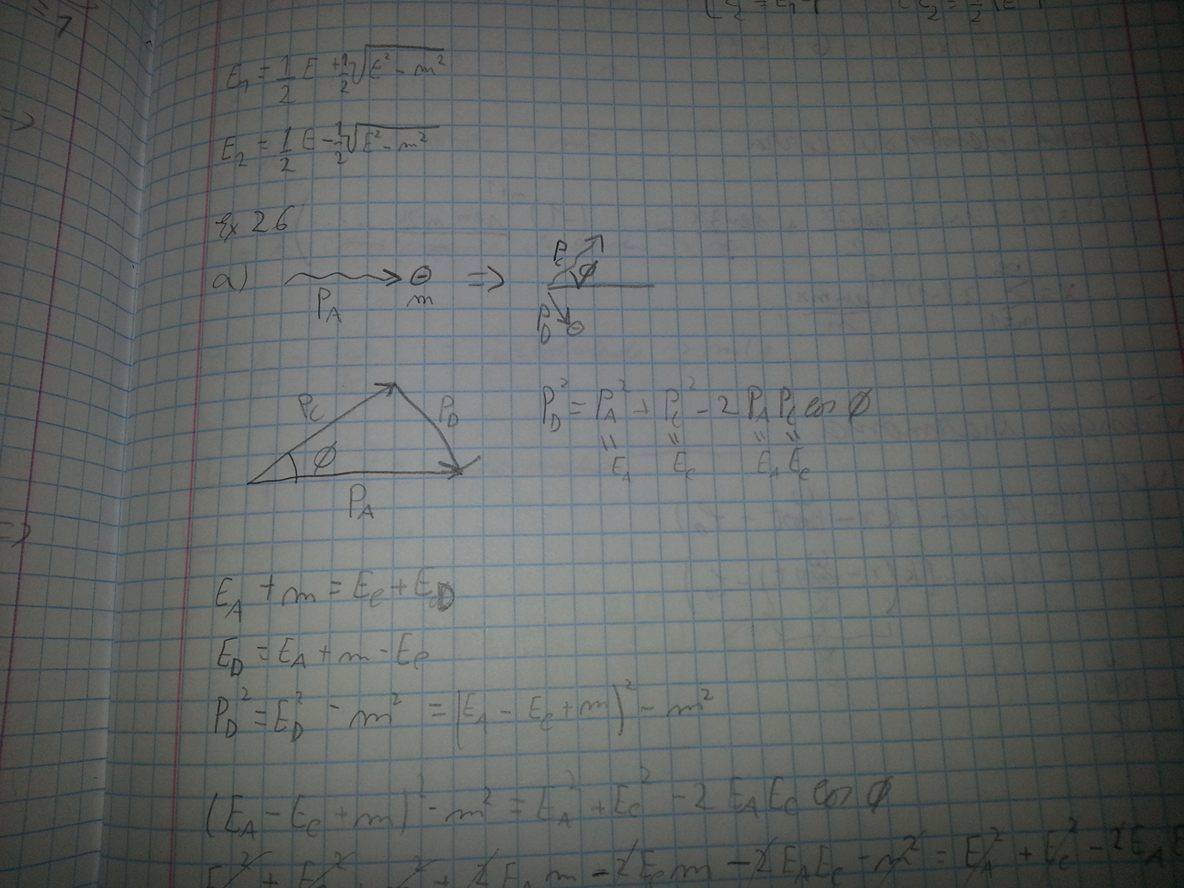 E₁ = 1/2 E + 1/2 √(E² - m²)
E₂ = 1/2 E - 1/2 √(E² - m²)
Ex 26
a) P_A m => P_C ϕ P_D
P_C ϕ P_D P_A
P_D² = P_A² + P_C² - 2 P_A P_C cos ϕ
= = = =
E_A E_C E_A E_C
E_A + m = E_C + E_D
E_D = E_A + m - E_C
P_D² = E_D² - m² = (E_A - E_C + m)² - m²
(E_A - E_C + m)² - m² = E_A² + E_C² - 2 E_A E_C cos ϕ
m - 2E_C m - 2E_A E_C - m² = E_A² + E_C² - 2E_A E